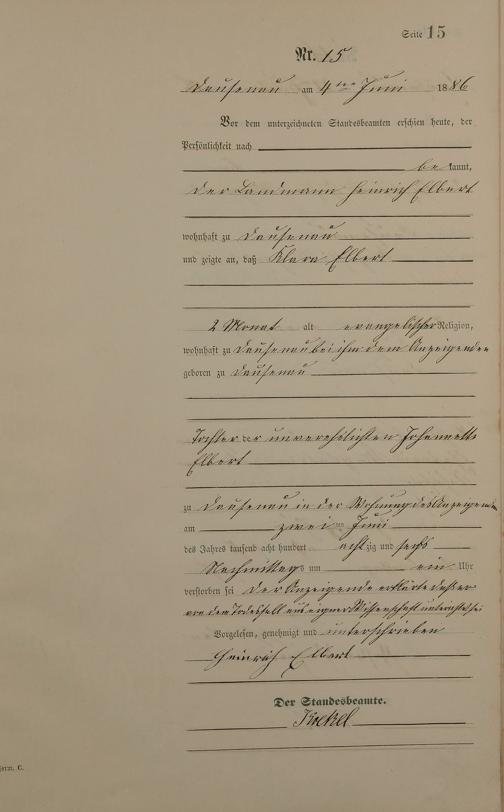 Seite 15
Nr. 15
Dausenau am 4ten Juni 1886
Vor dem unterzeichneten Standesbeamten erschien heute, der
Persönlichkeit nach
bekannt,
der Landmann Heinrich Elbert
wohnhaft zu Dausenau
und zeigte an, daß Klara Elbert
2 Monat alt evangelischer Religion,
wohnhaft zu Dausenau bei ihm dem Anzeigenden
geboren zu Dausenau
Tochter der unverehelichten Johannette
Elbert
zu Dausenau in der Wohnung des Anzeigenden
am zwei ten Juni
des Jahres tausend acht hundert achtzig und sechs
Nachmittags um ein Uhr
verstorben sei der Anzeigende erklärte daß er
von dem Todesfall aus eigner Wissenschaft unterrichtet sei
Vorgelesen, genehmigt und unterschrieben
Heinrich Elbert
Der Standesbeamte.
orm. C.